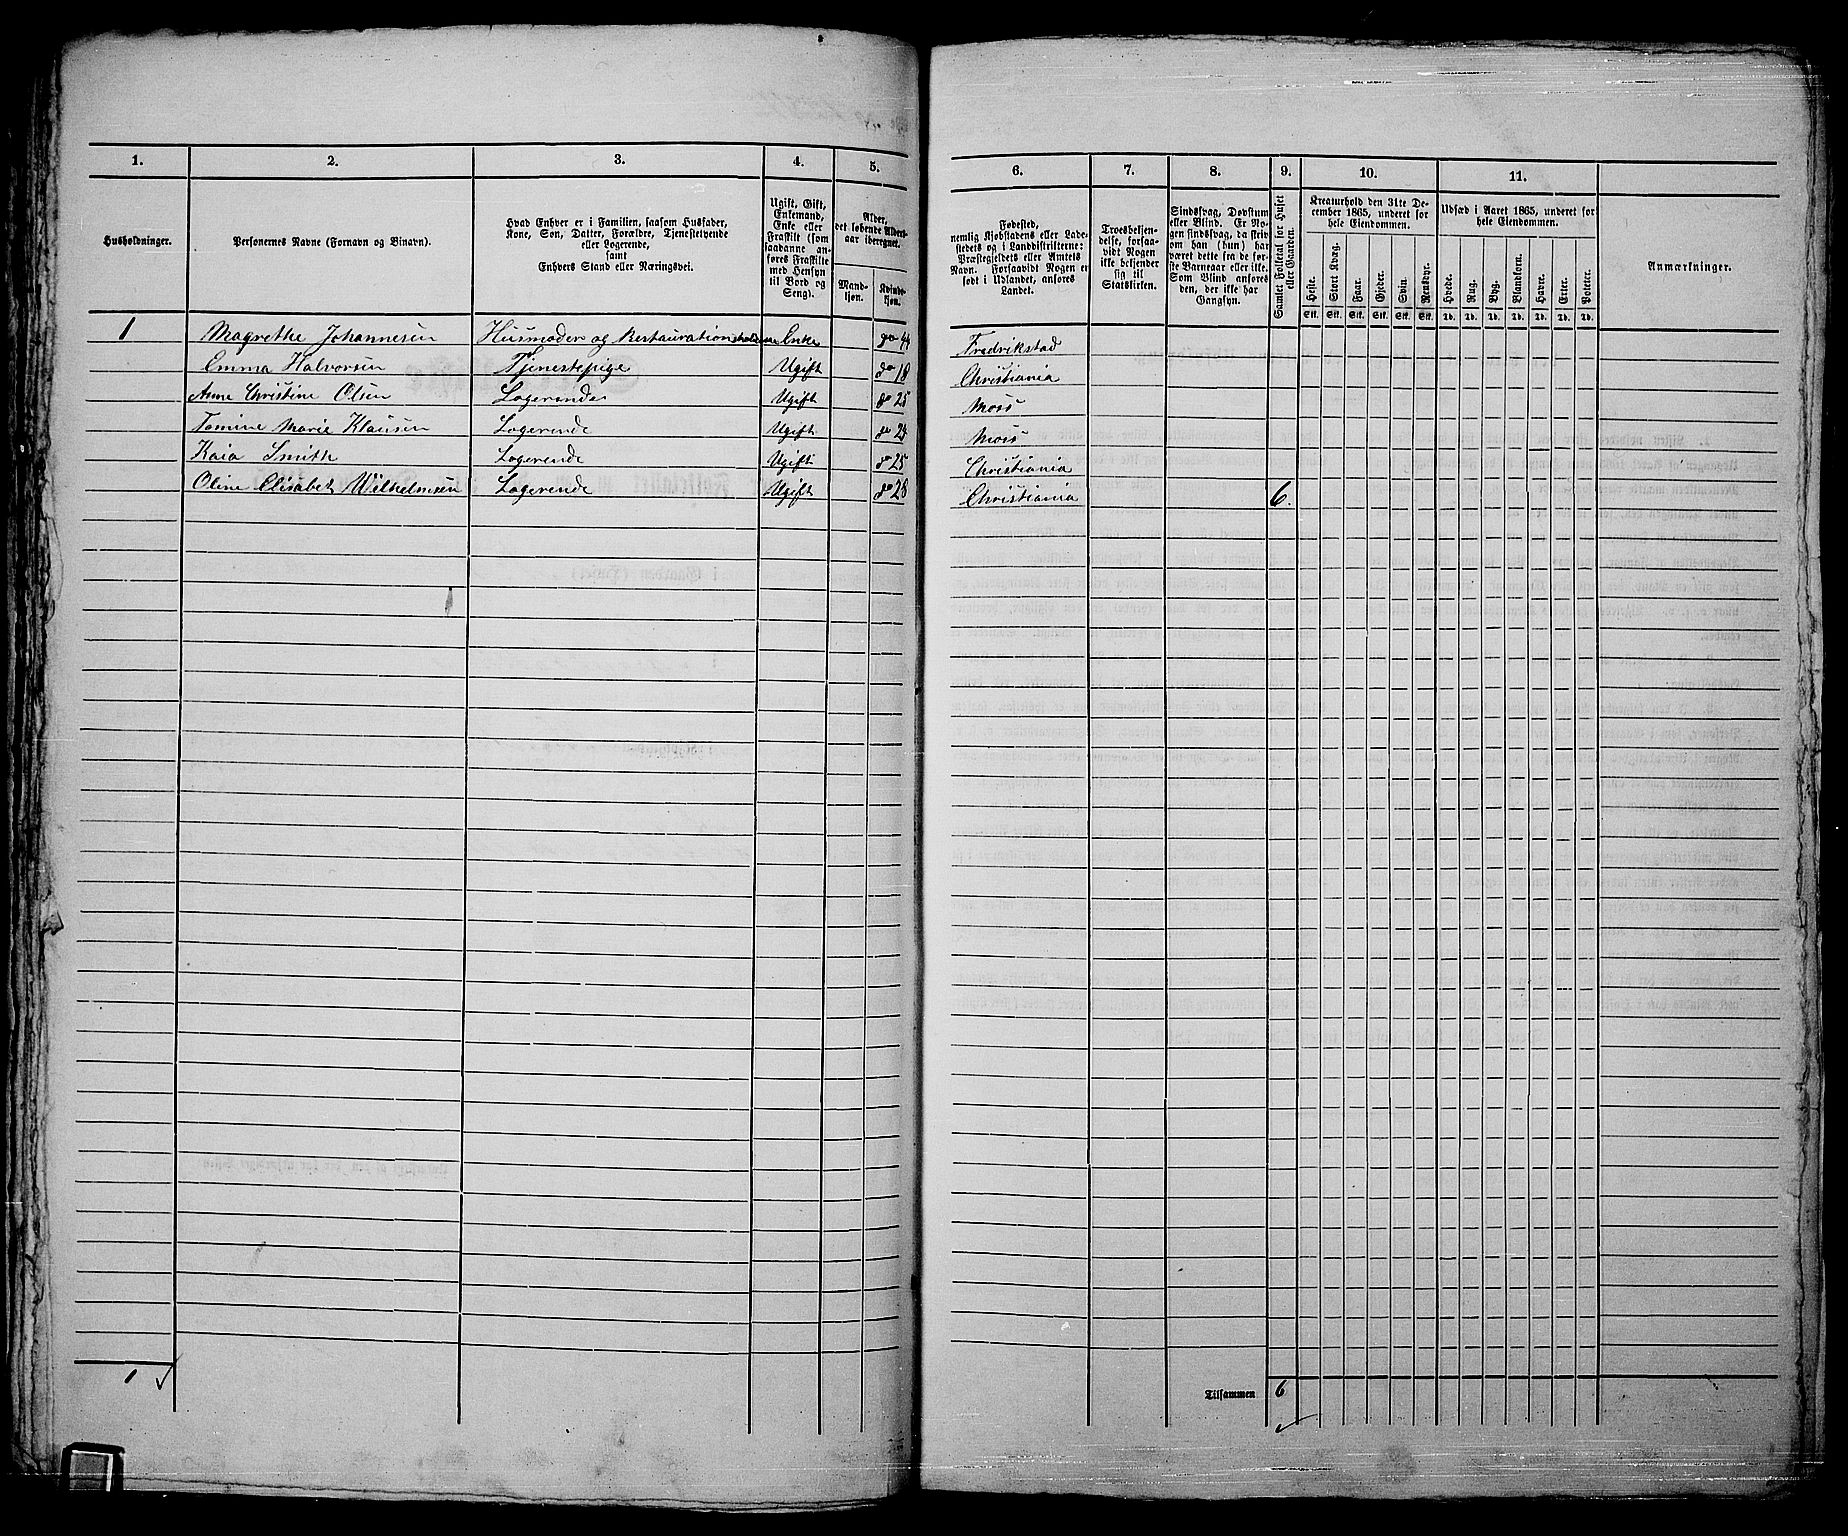 1. 2. 3. 4. 5. 6. 7. 8. 9. 10. 11.
Husholdninger.
Personernes Navne (Fornavn og Binavn).
Hvad Enhver er i Familien, saasom Husfader,
Kone, Søn, Datter, Forældre, Tjenestetyende
eller Logerende,
samt
Enhvers Stand eller Næringsvei.
Ugift, Gift,
Enkemand,
Enke eller
Fraskilt (som
saadanne an-
føres Fraskilte
med Hensyn
til Bord og
Seng).
Alder,
det løbende Alders-
aar iberegnet.
Mand-
kjøn.
Kvinde-
kjøn.
Fødested,
nemlig Kjøbstadens eller Lade-
stedets og i Landdistrikterne:
Præstegjeldets eller Amtets
Navn. Forsaavidt Nogen er
født i Udlandet, anføres
Landet.
Troesbekjen-
delse, forsaa-
vidt Nogen
ikke bekjender
sig til
Statskirken.
Sindssvag, Døvstum
eller Blind. Er No-
gen sindssvag, da skriv
om han (hun) har
været dette fra de før-
ste Barneaar eller ikke.
Som Blind ansøres
den, der ikke har
Gangsyn.
Samlet Folketal for Huset
eller Gaarden.
Kreaturhold den 31te De-
cember 1865, underet for
hele Eiendommen.
Heste. Stort Kvæg. Faar. Gjeder. Svin. Rensdyr.
Stk. Stk. Stk. Stk. Stk. Stk.
Udsæd i Aaret 1865, underet for
hele Eiendommen.
Hvede. Rug. Byg. Blandkorn. Havre. Erter. Poteter.
Td. Td. Td. Td. Td. Td. Td.
Anmærkninger.
1 Magrethe Johannesen Husmoder og Restaurationsholderske Enke 44 Fredrikstad
Emma Halvorsen Tjenestepige Ugift 18 Christiania
Anne Christine Olsen Logerende Ugift 25 Moss
Tomine Marie Klausen Logerende Ugift Moss
Kaia Smith Logerende Ugift 25 Christiania
Oline Elisabet Wilhelmsen Logerende Ugift 28 Christiania 6.
1 ✓
Tilsammen 6
✓